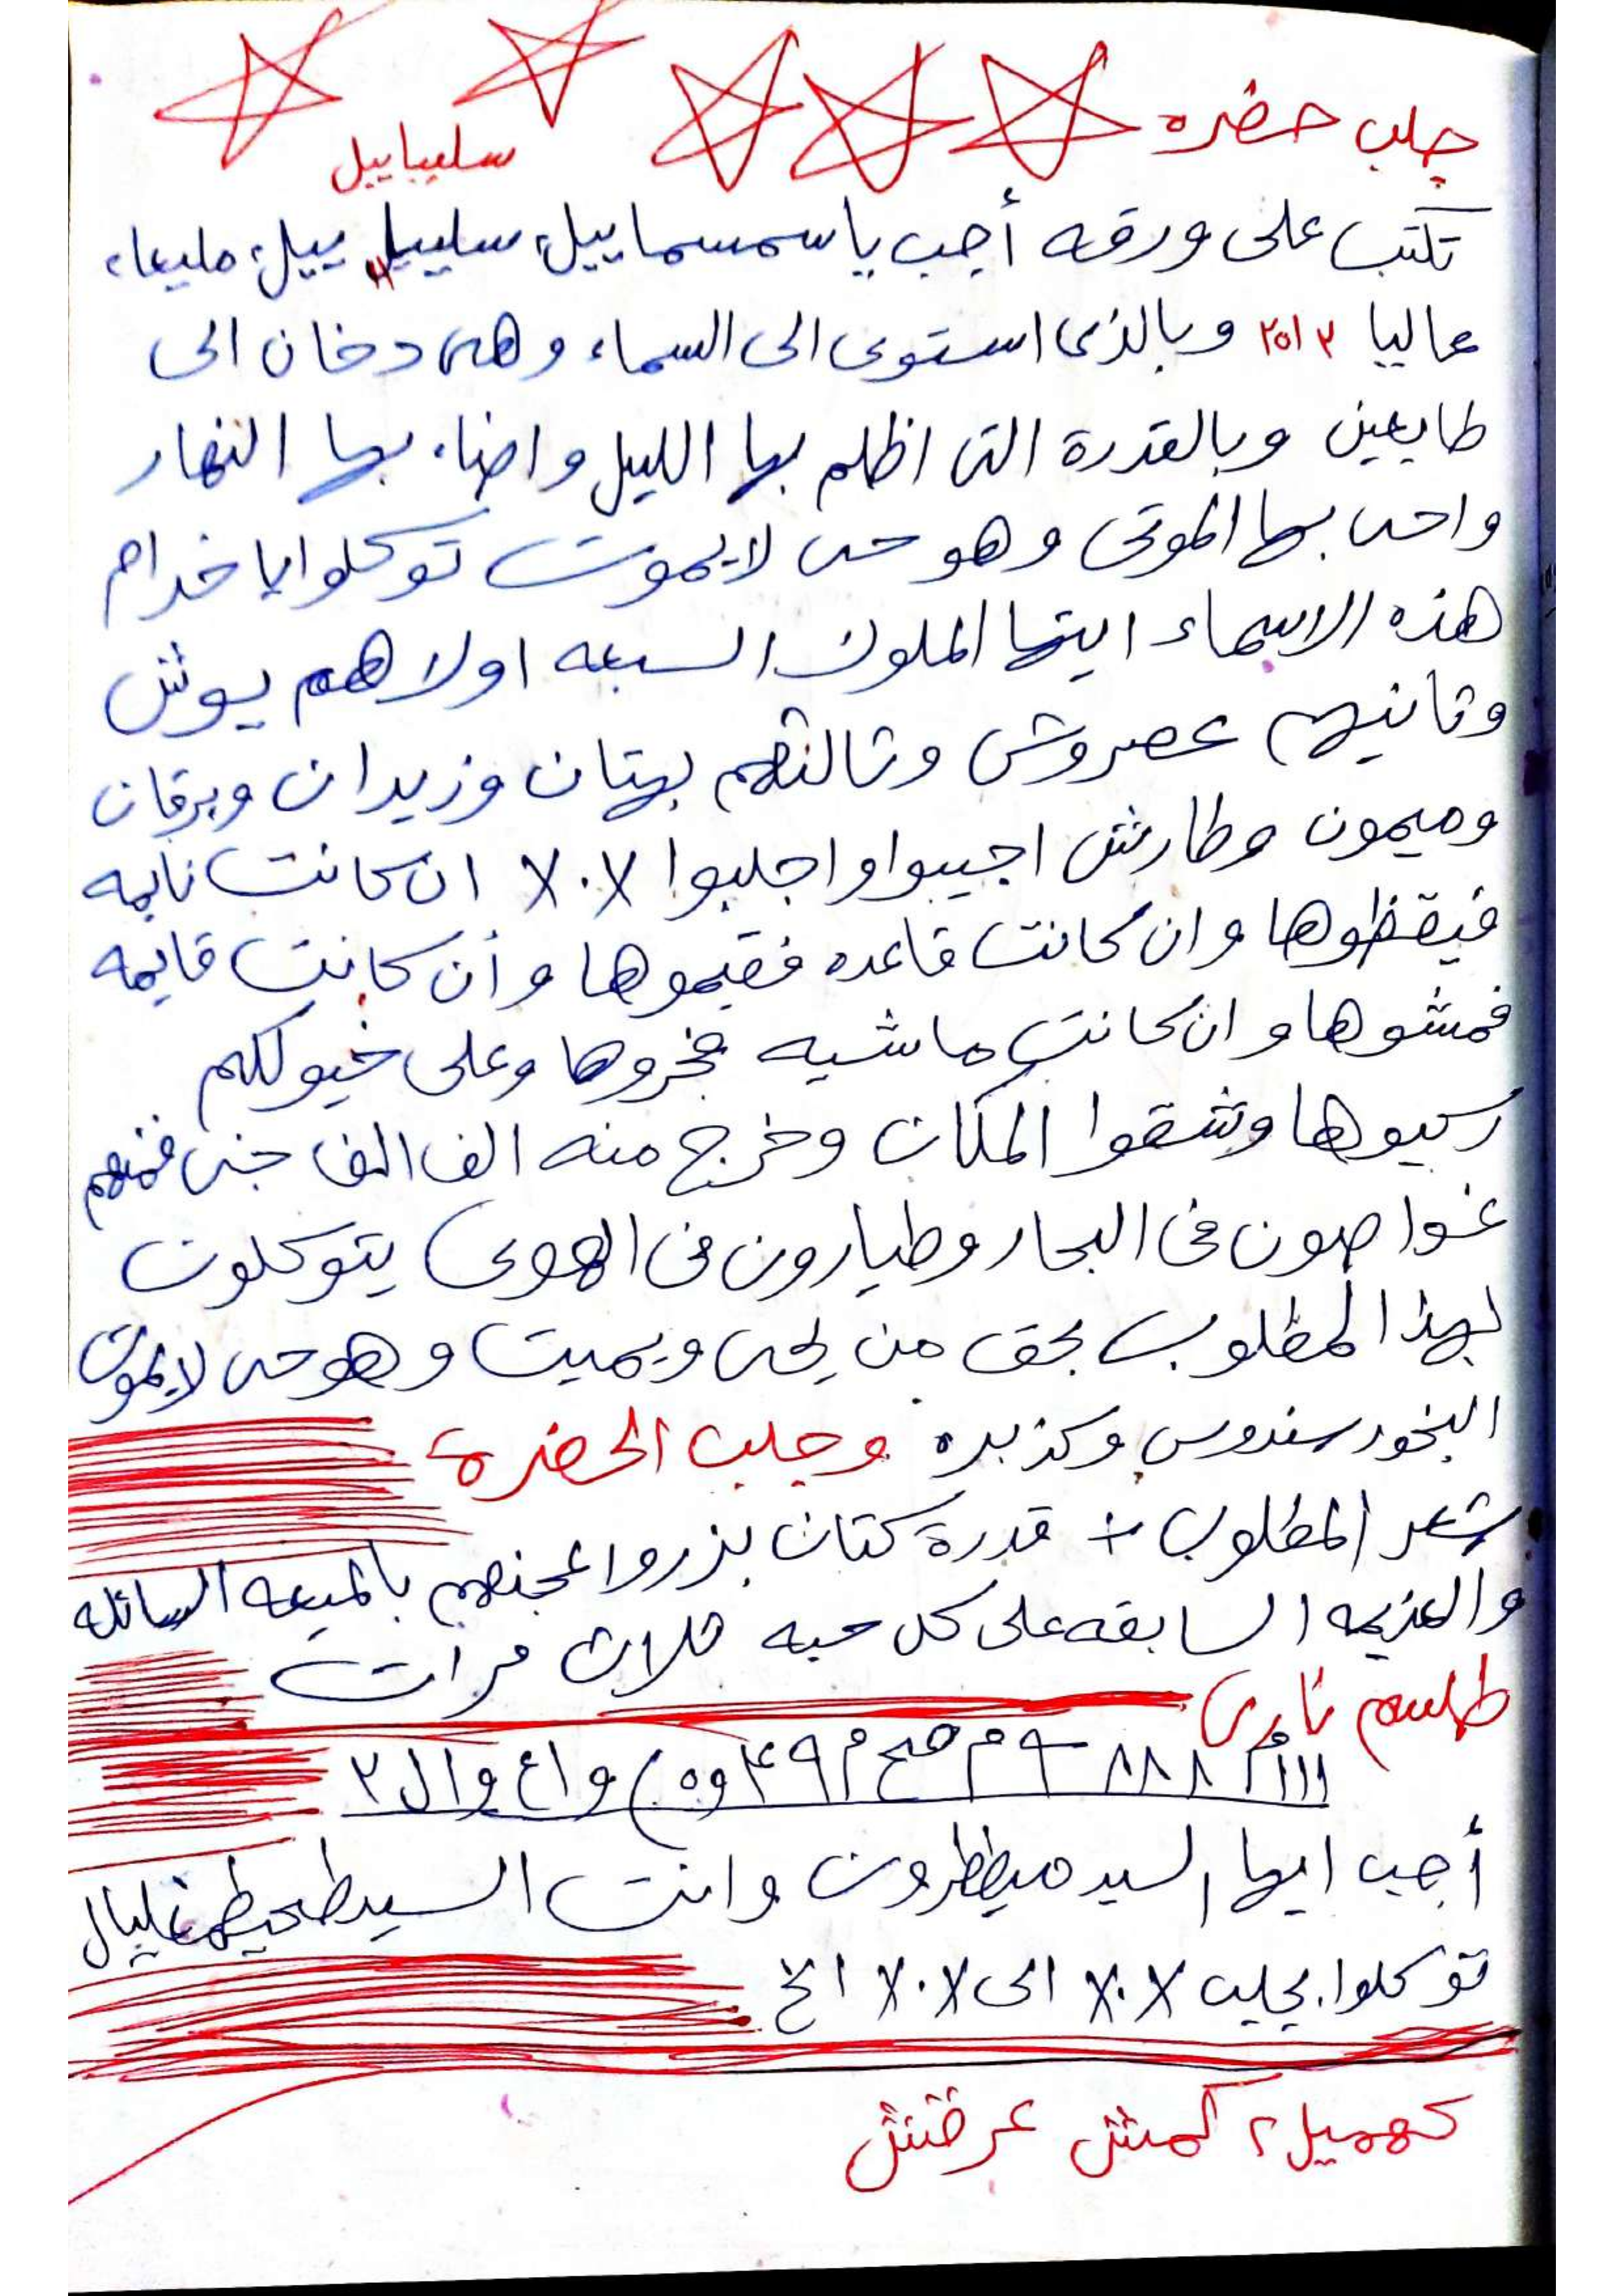 جلب حضره
سليباييل
تكتب على ورقه أجب يا سمسماييل سلييل ييل مليعا
عاليا وبالذى استوى الى السماء وهى دخان الى
طايعين وبالقدرة التى اظلم بها الليل واضاء بها النهار
واحى بها الموتى وهو حى لايموت توكلوا يا خدام
هذه الاسماء ايتها الملوك السبعه اولاهم يوش
وثانيهم عصروش وثالثهم بهتان وزيدان وبرقان
وميمون وطارش اجيبوا واجلبوا ٧٠٧ ان كانت نايمه
فيقظوها وان كانت قاعده فقيموها وأن كانت قايمه
فمشوها وان كانت ماشيه فجروها وعلى خيولكم
ركبوها وشقوا المكان وخرج منه الف الف جنى فمنهم
غواصون فى البحار وطيارون فى الهوى يتوكلون
بهذا المطلوب بحق من يحى ويميت وهو حى لايموت
البخور سندوس وكزبره وجلب الحضرة
شعر المطلوب + قدرة كتان بذروا عجنهم بالميعه السائله
والعزيمه السابقه على كل حبه ثلاث مرات
طلسم نارى
١١١م ٨٨٨ ٩ م صح م ٤٩ وه) واع وال ٢
أجب ايها السيد ميططرون وانت السيد طحيطمغليال
توكلوا بجلب ٧٠٧ الى ٧٠٧ الخ
كهميل ٢ كمش عرقش